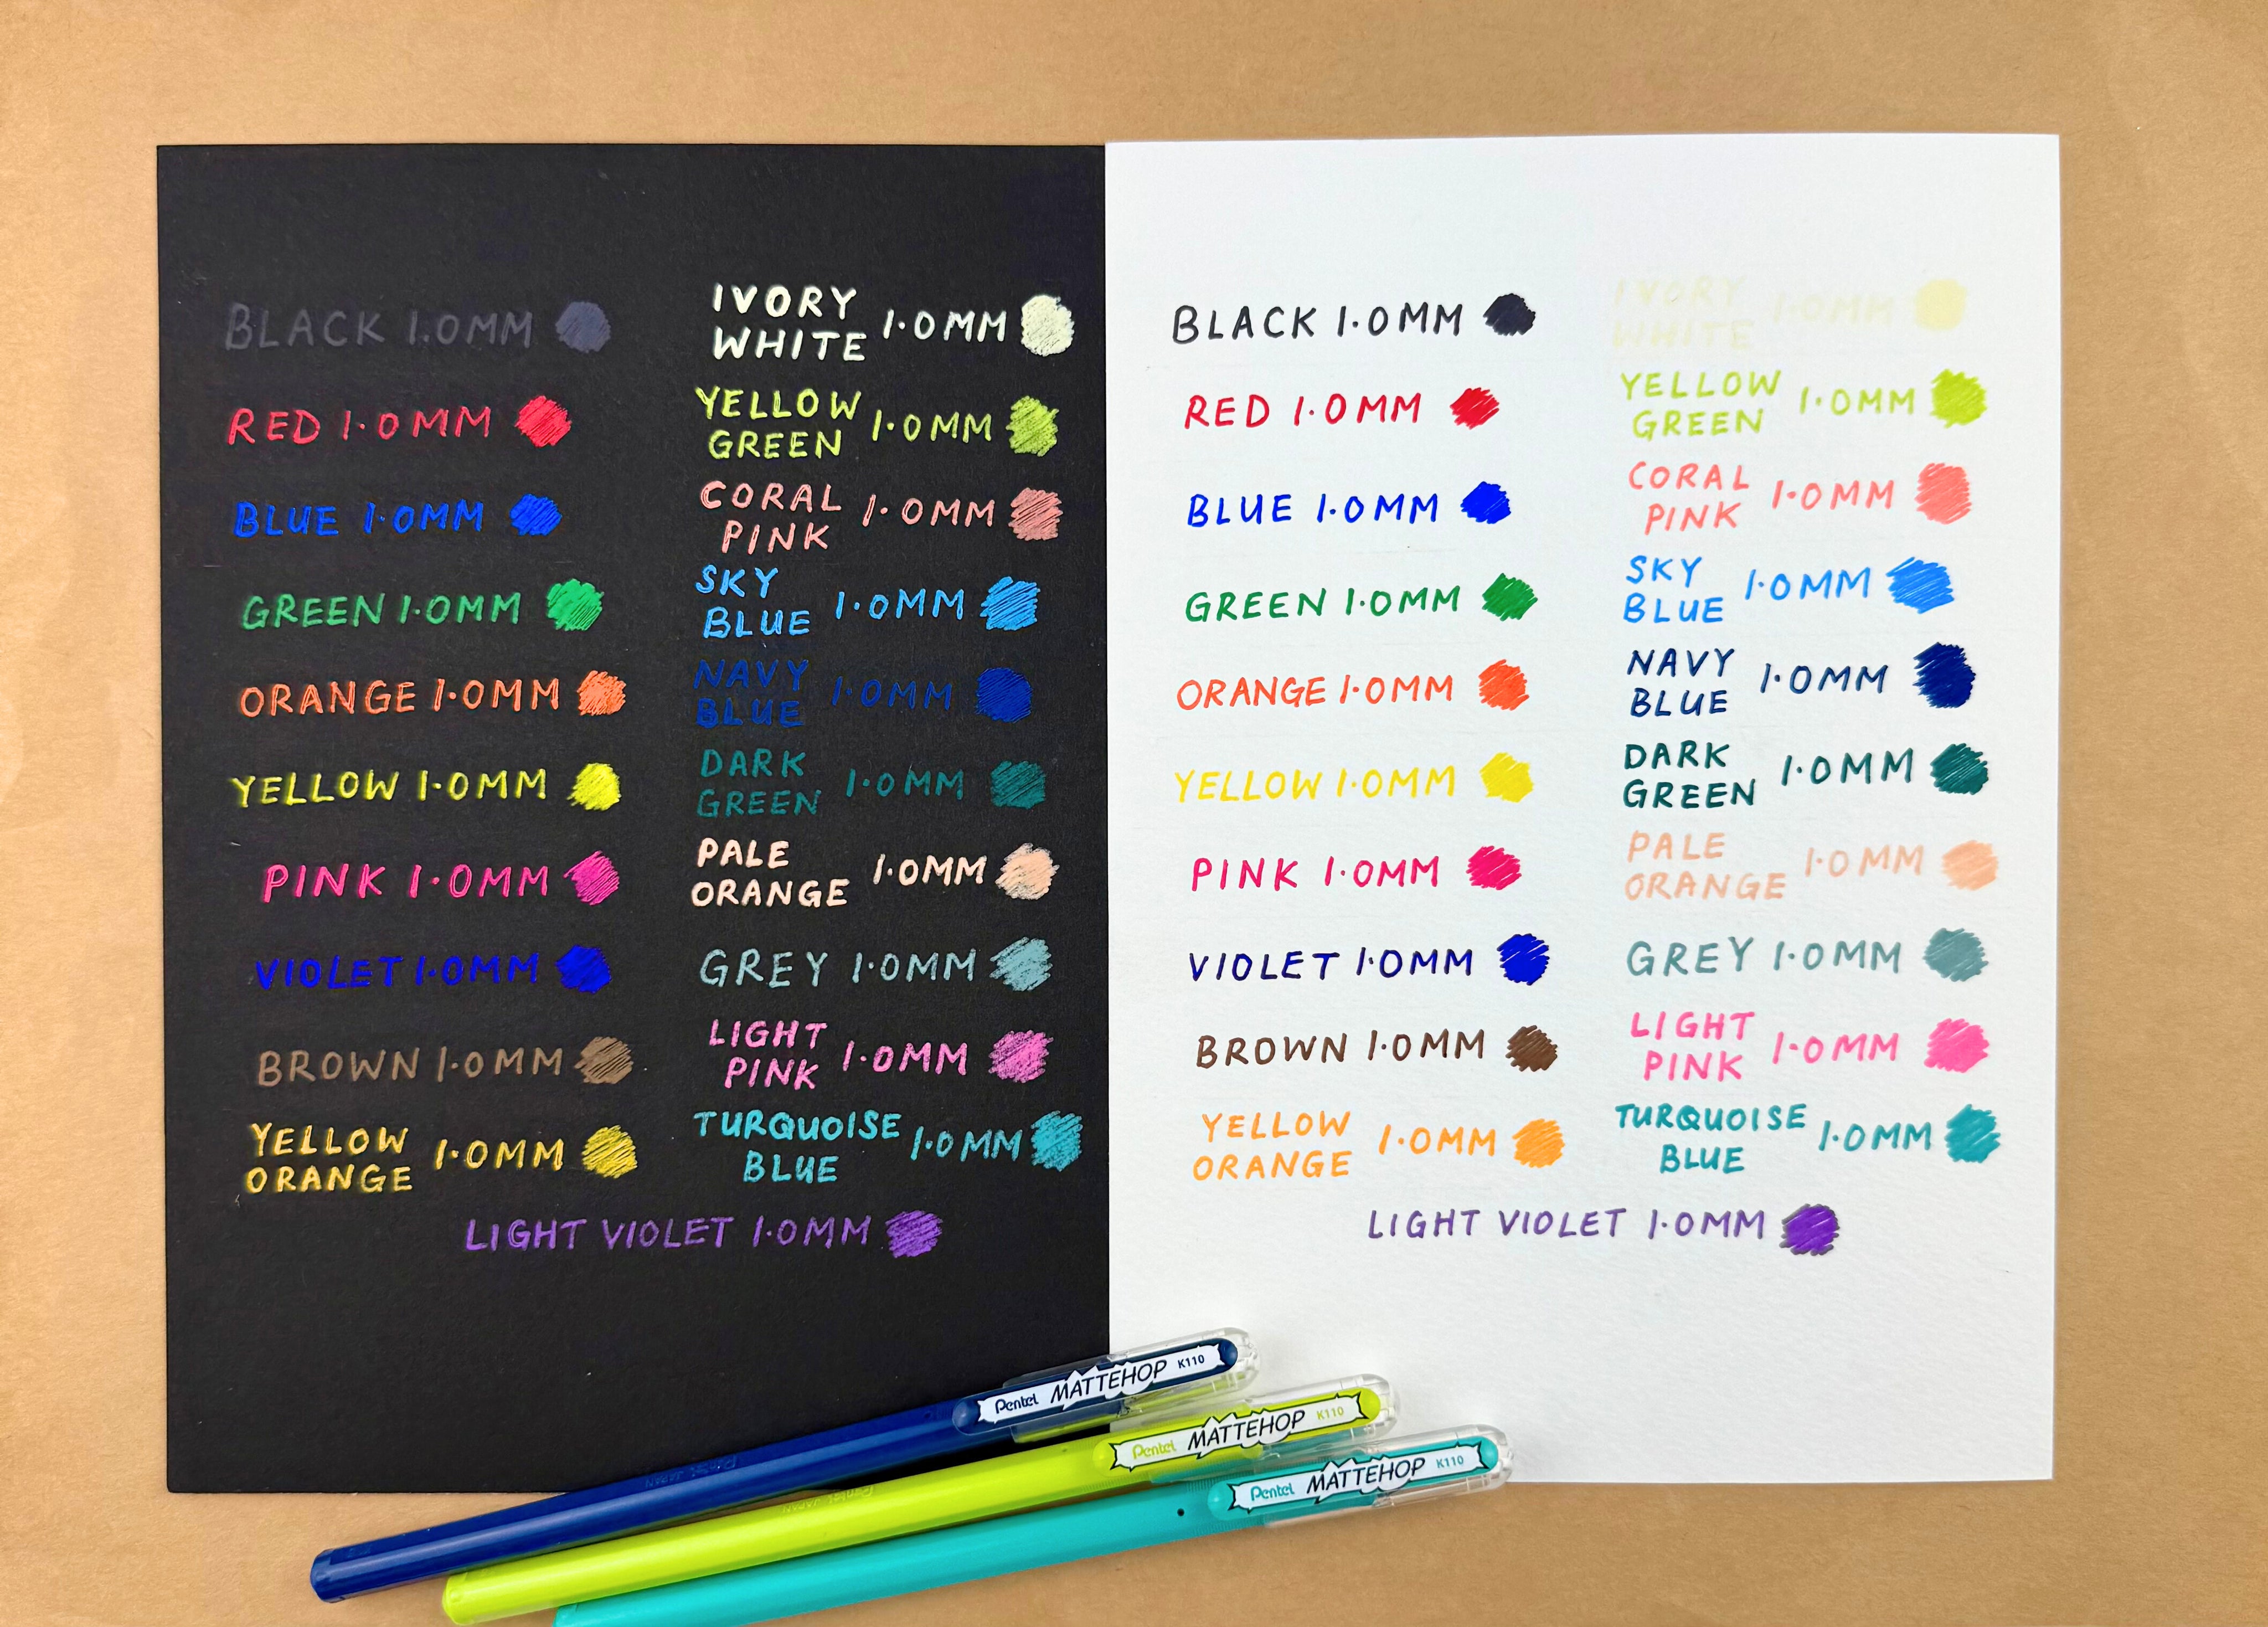 BLACK 1.0MM
RED 1.0MM
BLUE 1.0MM
GREEN 1.0MM
ORANGE 1.0MM
YELLOW 1.0MM
PINK 1.0MM
VIOLET 1.0MM
BROWN 1.0MM
YELLOW
ORANGE 1.0MM
IVORY
WHITE 1.0MM
YELLOW
GREEN 1.0MM
CORAL
PINK 1.0MM
SKY
BLUE 1.0MM
NAVY
BLUE 1.0MM
DARK
GREEN 1.0MM
PALE
ORANGE 1.0MM
GREY 1.0MM
LIGHT
PINK 1.0MM
TURQUOISE
BLUE 1.0MM
LIGHT VIOLET 1.0MM
BLACK 1.0MM
RED 1.0MM
BLUE 1.0MM
GREEN 1.0MM
ORANGE 1.0MM
YELLOW 1.0MM
PINK 1.0MM
VIOLET 1.0MM
BROWN 1.0MM
YELLOW
ORANGE 1.0MM
IVORY
WHITE 1.0MM
YELLOW
GREEN 1.0MM
CORAL
PINK 1.0MM
SKY
BLUE 1.0MM
NAVY
BLUE 1.0MM
DARK
GREEN 1.0MM
PALE
ORANGE 1.0MM
GREY 1.0MM
LIGHT
PINK 1.0MM
TURQUOISE
BLUE 1.0MM
LIGHT VIOLET 1.0MM
Pentel MATTEHOP K110
Pentel MATTEHOP K110
Pentel MATTEHOP K110